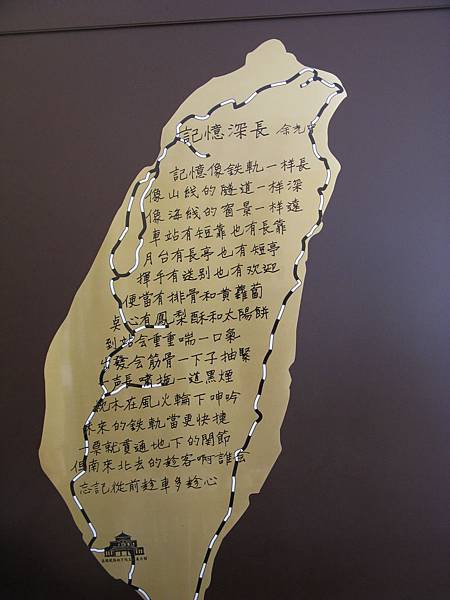 記憶深長 余光中
記憶像鉄軌一样長
像山线的隧道一样深
像海线的窗景一样遠
車站有短靠也有長靠
月台有長亭也有短亭
揮手有送别也有欢迎
便當有排骨和黄蘿蔔
奌心有鳳梨酥和太陽餅
到站会重重喘一口氣
出發会筋骨一下子抽緊
一声長嘯拖一道黑煙
枕木在風火輪下呻吟
未來的鉄軌當更快捷
一票就貫通地下的関節
但南來北去的趁客啊誰会
忘記從前趁車多趁心